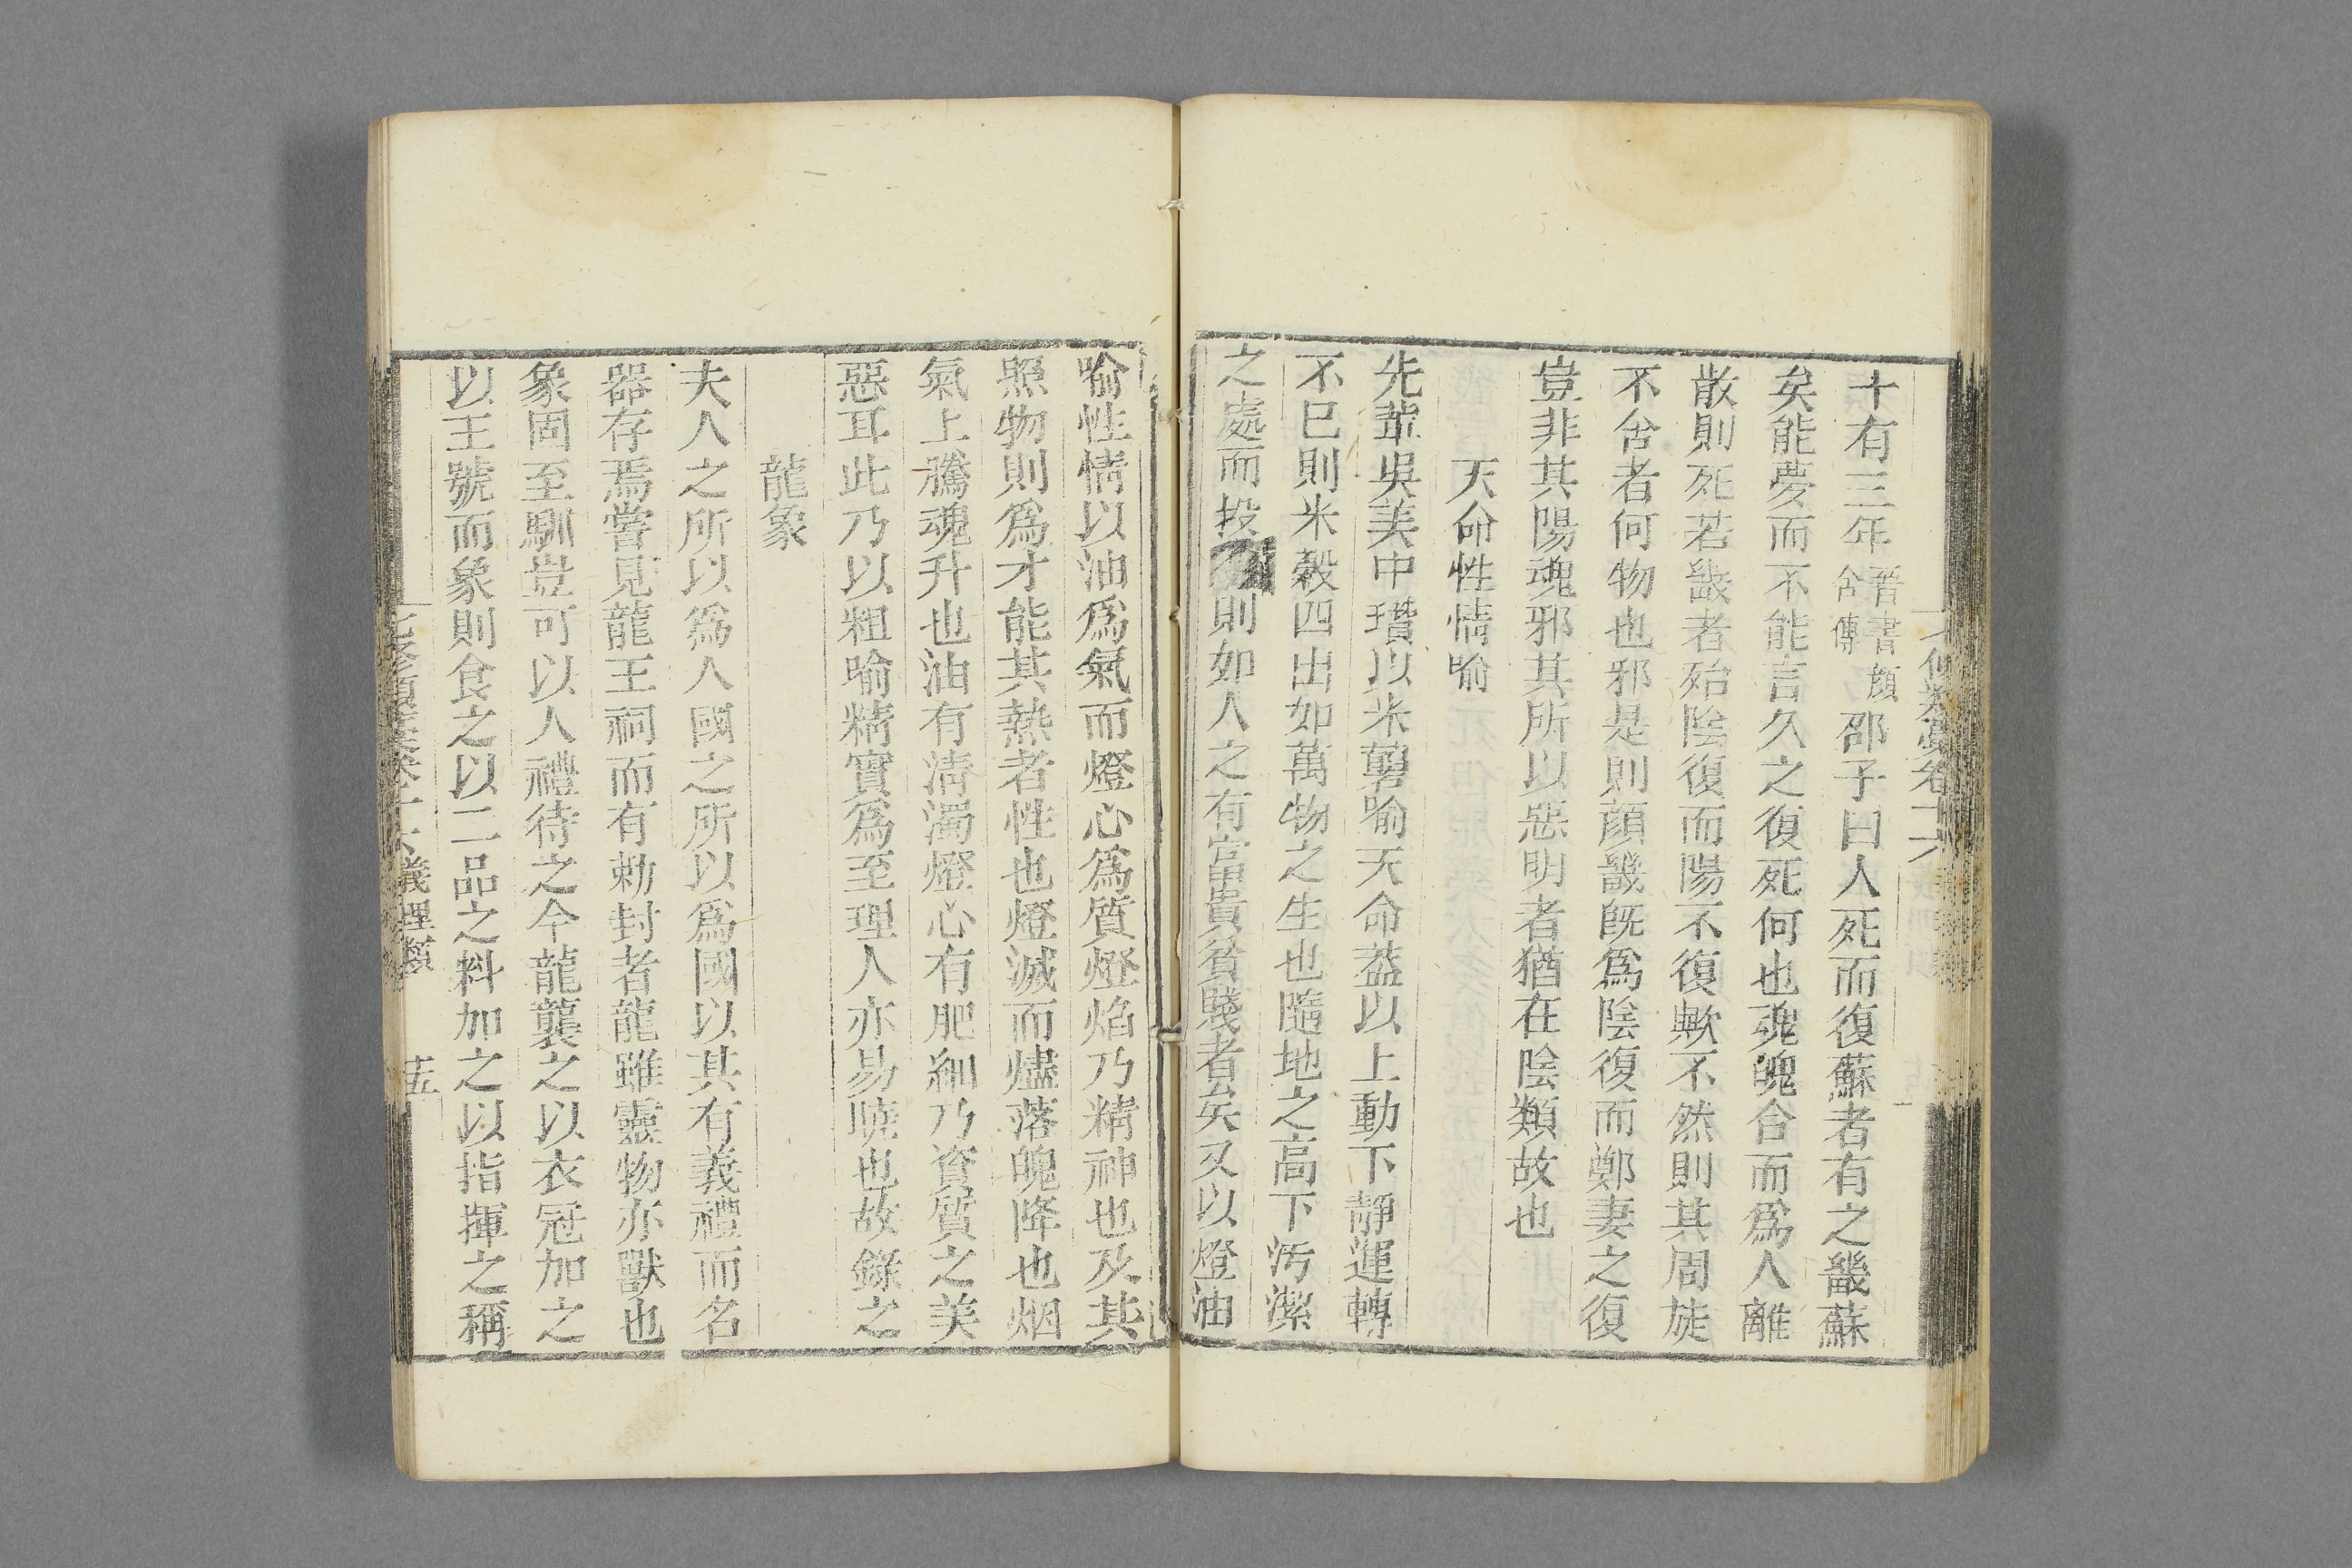 十有三年晉書顔含傳邵子曰人死而復蘇者有之畿蘇
矣能夢而不能言久之復死何也魂魄合而爲人離
散則死若畿者殆陰復而陽不復歟不然則其周旋
不舍者何物也邪是則顔畿旣爲陰復而鄭妻之復
豈非其陽魂邪其所以惡明者猶在陰類故也
天命性情喻
先輩吳美中瓚以米磨喻天命葢以上動下靜運轉
不已則米穀四出如萬物之生也隨地之高下汚潔
之處而投則如人之有富貴貧賤者矣又以燈油
喻性情以油爲氣而燈心爲質燈焰乃精神也及其
照物則爲才能其熱者性也燈滅而燼落魄降也烟
氣上騰魂升也油有淸濁燈心有肥細乃資質之美
惡耳此乃以粗喻精實爲至理人亦易曉也故錄之
龍象
夫人之所以爲人國之所以爲國以其有義禮而名
器存焉嘗見龍王祠而有勑封者龍雖靈物亦獸也
象固至馴豈可以人禮待之今龍襲之以衣冠加之
以王號而象則食之以二品之料加之以指揮之稱
七修類藁卷十六 義理類 十五